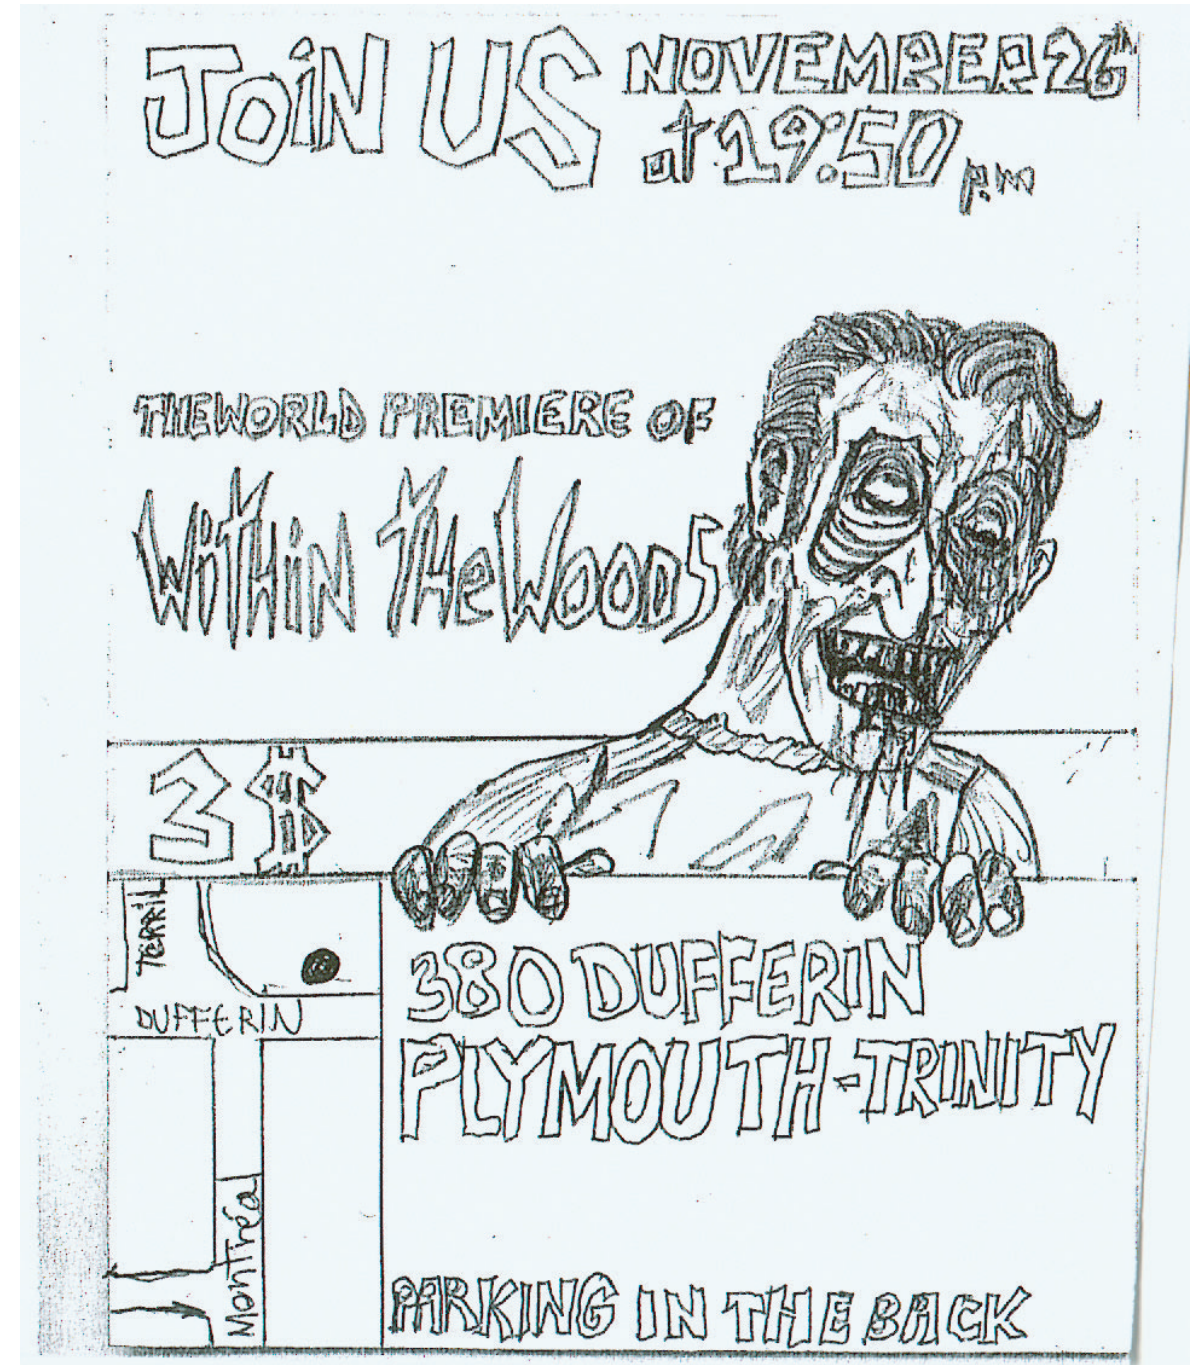 JOiN US
NOVEMBER 26th
at 19:50 p.m
THE WORLD PREMIERE OF
WiTHiN THe WOODS
3 $
TERRIL
DUFFERIN
MonTréal
380 DUFFERIN
PLYMOUTH-TRINITY
PARKING IN THE BACK